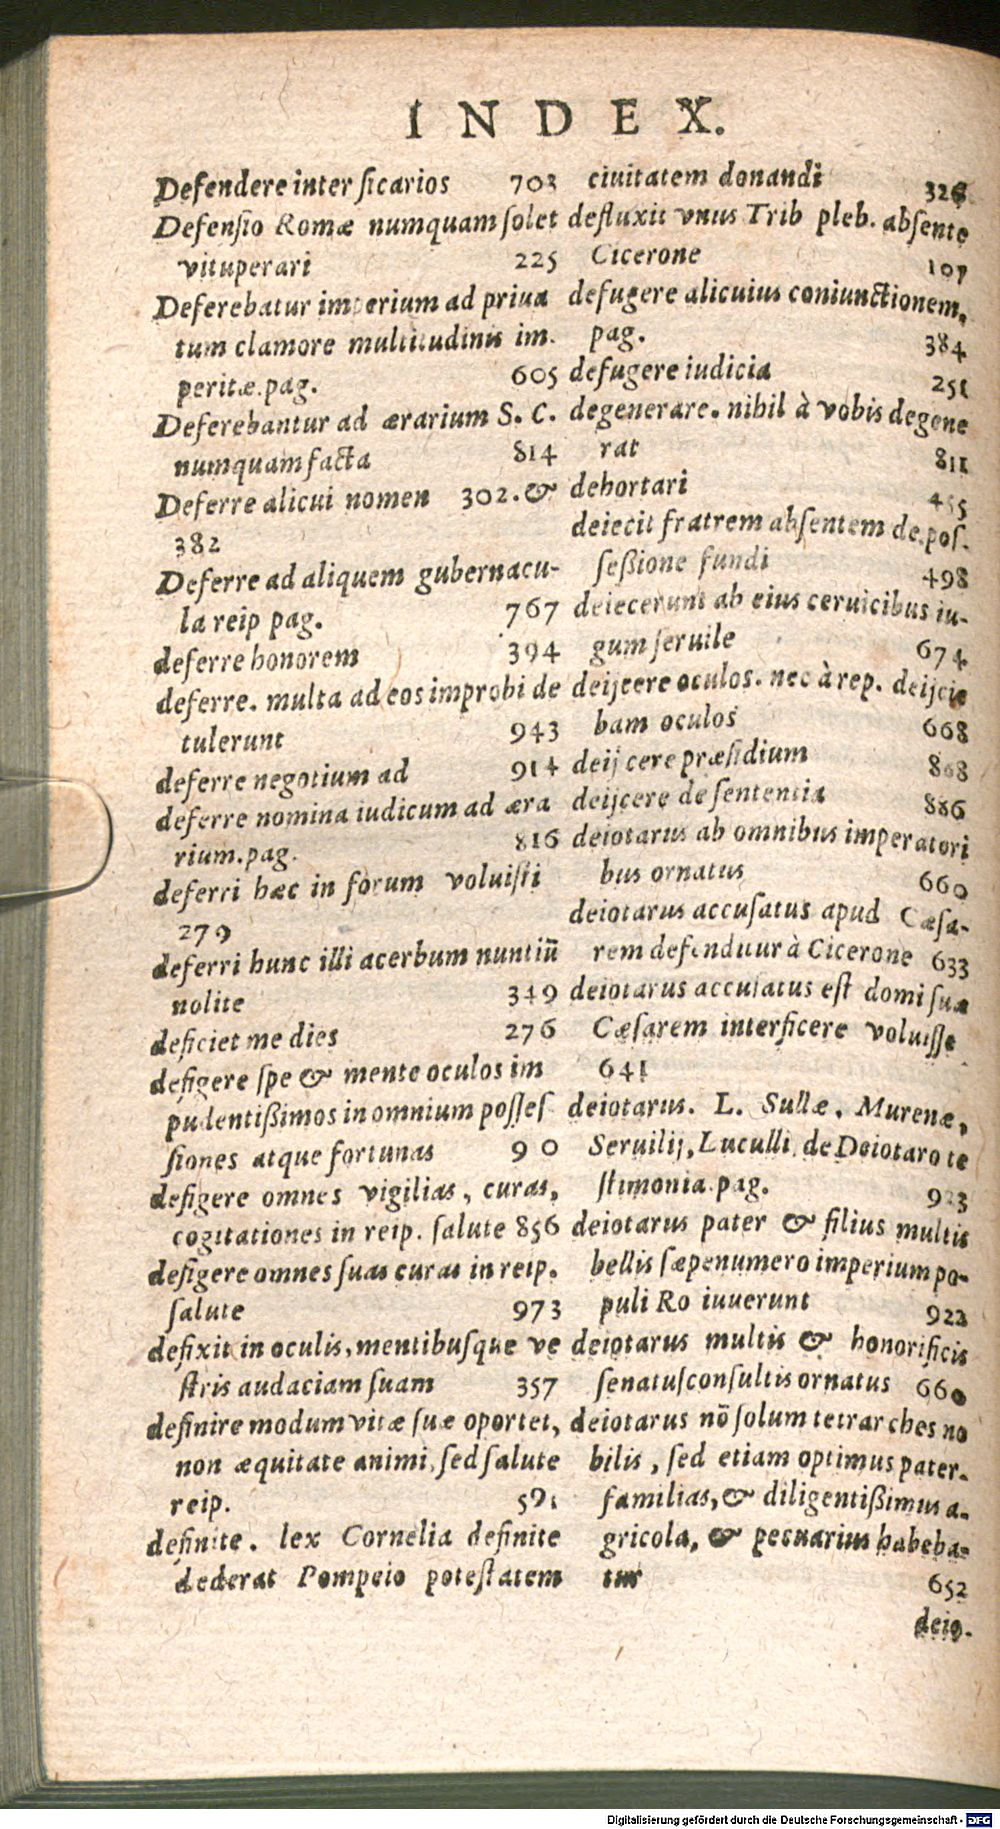 INDEX.
Defendere inter ſicarios 703
Defenſio Romæ numquam ſolet
vituperari 225
Deferebatur imperium ad priua
tum clamore multitudinis im.
peritæ.pag. 605
Deferebantur ad ærarium S. C.
numquam facta 814
Deferre alicui nomen 302.&
382
Deferre ad aliquem gubernacu-
la reip pag. 767
deferre honorem 394
deferre. multa ad eos improbi de
tulerunt 943
deferre negotium ad 914
deferre nomina iudicum ad æra
rium.pag. 816
deferri hæc in forum voluiſti
279
deferri hunc illi acerbum nuntiū
nolite 349
deficiet me dies 276
defigere ſpe & mente oculos im
pudentißimos in omnium poſſeſ
ſiones atque fortunas 90
defigere omnes vigilias, curas,
cogitationes in reip. ſalute 856
defigere omnes ſuas curas in reip.
ſalute 973
defixit in oculis, mentibuſque ve
ſtris audaciam ſuam 357
definire modum vitæ ſuæ oportet,
non æquitate animi, ſed ſalute
reip. 591
definite. lex Cornelia definite
dederat Pompeio poteſtatem
ciuitatem donandi 326
defluxit vnus Trib pleb. abſente
Cicerone 107
defugere alicuius coniunctionem.
pag. 384
defugere iudicia 251
degenerare. nihil à vobis degene
rat 811
dehortari 455
deiecit fratrem abſentem de poſ-
ſeßione fundi 498
deiecerunt ab eius ceruicibus iu-
gum ſeruile 674
deijcere oculos. nec à rep. deijcie
bam oculos 668
deijcere præſidium 868
deijcere de ſententia 886
deiotarus ab omnibus imperatori
bus ornatus 660
deiotarus accuſatus apud Cæſa-
rem defenditur à Cicerone 633
deiotarus accuſatus eſt domi ſuæ
Cæſarem interficere voluiſſe
641
deiotarus. L. Sullæ, Murenæ,
Seruilij, Luculli de Deiotaro te
ſtimonia.pag. 923
deiotarus pater & filius multis
bellis ſæpenumero imperium po-
puli Ro iuuerunt 922
deiotarus multis & honorificis
ſenatuſconſultis ornatus 660
deiotarus nō ſolum tetrarches no
bilis, ſed etiam optimus pater-
familias, & diligentißimus a-
gricola, & pecuarius habeba-
tur 652
deio-
Digitalisierung gefördert durch die Deutsche Forschungsgemeinschaft - DFG